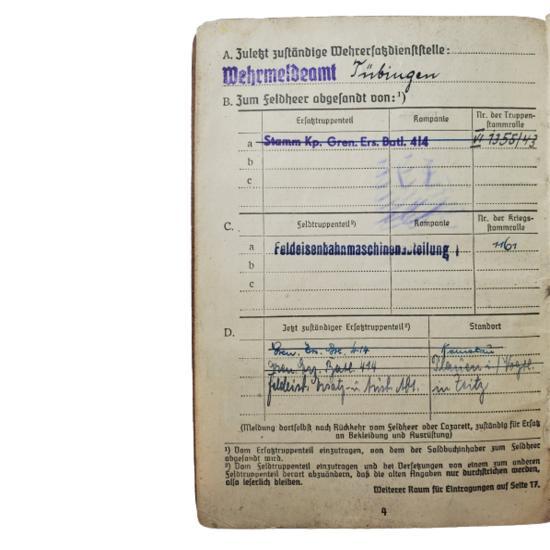 A. Zuletzt zuständige Wehrersatzdienststelle:
Wehrmeldeamt Tübingen
B. Zum Feldheer abgesandt von:¹)
Ersatztruppenteil Kompanie Nr. der Truppen-
stammrolle
a Stamm Kp. Gren. Ers. Batl. 414 VI 1355/43
b
c
C. Feldtruppenteil²) Kompanie Nr. der Kriegs-
stammrolle
a Feldeisenbahnmaschinenabteilung 1161
b
c
D. Jetzt zuständiger Ersatztruppenteil²) Standort
Gren. Ers. Btl. 414
Gren. Batl 414 Plauen i/Vogtl.
Feldeisb. Ersatz- u. Ausb. Abt. in
(Meldung dortselbst nach Rückkehr vom Feldheer oder Lazarett, zuständig für Ersatz
an Bekleidung und Ausrüstung)
¹) Vom Ersatztruppenteil einzutragen, von dem der Soldbuchinhaber zum Feldheer
abgesandt wird.
²) Vom Feldtruppenteil einzutragen und bei Versetzungen von einem zum anderen
Feldtruppenteil derart abzuändern, daß die alten Angaben nur durchstrichen werden,
also leserlich bleiben.
Weiterer Raum für Eintragungen auf Seite 17.
4